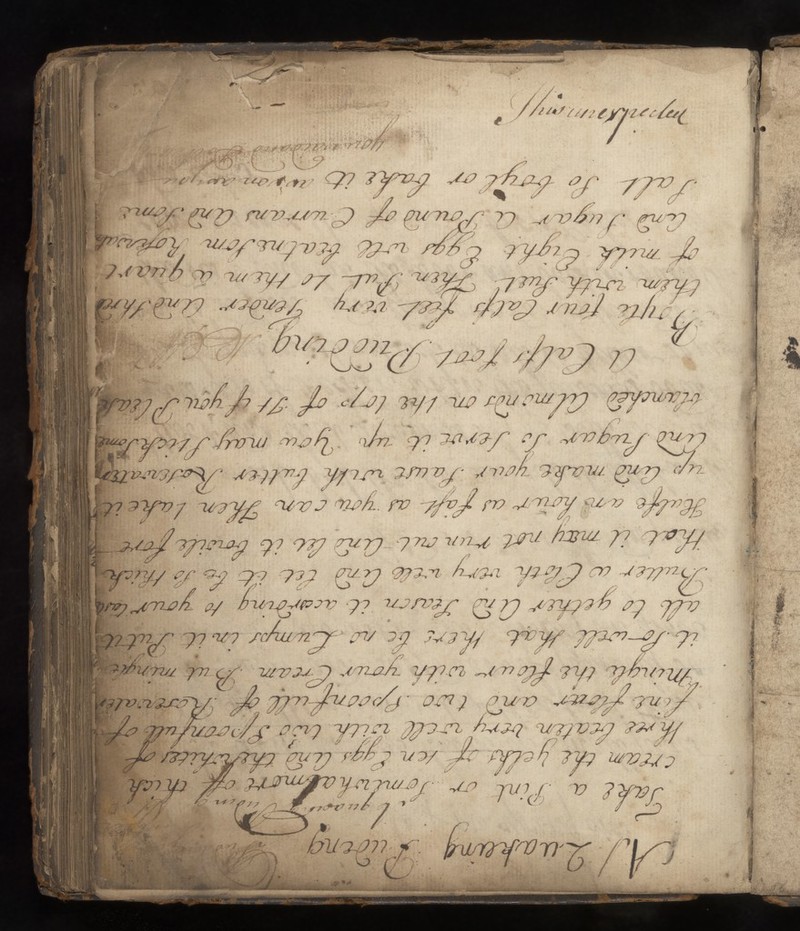 A Quakeing Puding
a quaking Puding
Take a Pint or Somtwhat more off thick
cream the yelks of ten Eggs And the whites of
three beaten very well with two Spoonfull of
fine flower and two Spoonfull of Rosewater
mingle the flour with your Cream But mingle
it So well that there be no Lumps in it Put it
all to gether And Season it acording to your tast
Butter a Cloth very well And let it be So thick
that it may not run out And let it boile for
Halfe an hour as fast as you can Then take it
up And make your Sause with butter Rosewater
And Sugar So Serve it up You may Stick Some
blanched Almonds on the top of It if you Please
A Calfs foot Pudding
Boyle four Calfs feet very Tender And Shred
them with Suet Then Put to them a quart
of milk Eight Eggs well beaten Some Rosewater
And Sugar a Pound of Currans And Some
Salt So boyl or bake it
This unexpected